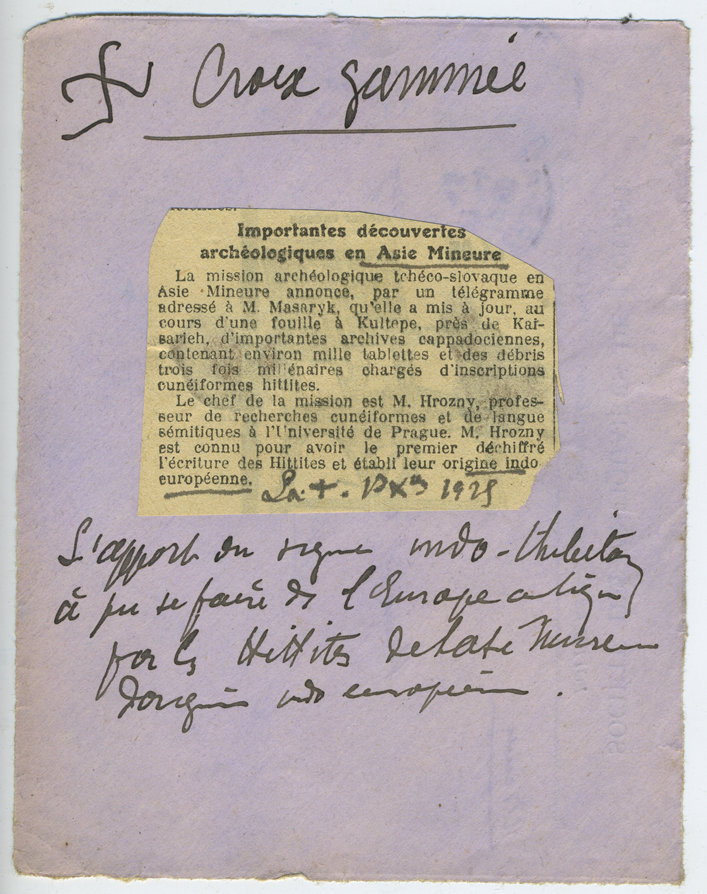 Croix gammée
Importantes découvertes
archéologiques en Asie Mineure
La mission archéologique tchéco-slovaque en
Asie Mineure annonce, par un télégramme
adressé à M. Masaryk, qu'elle a mis à jour, au
cours d'une fouille à Kultepe, près de Kai-
sarieh, d'importantes archives cappadociennes,
contenant environ mille tablettes et des débris
trois fois millénaires chargés d'inscriptions
cunéiformes hittites.
Le chef de la mission est M. Hrozny, profes-
seur de recherches cunéiformes et de langue
sémitiques à l'Université de Prague. M. Hrozny
est connu pour avoir le premier déchiffré
l'écriture des Hittites et établi leur origine indo
européenne.
1925
L'apport du signe indo-thibétain
à pu se faire ds l'Europe antique
par les Hittites de l'Asie Mineure
d'origine indo européenne.